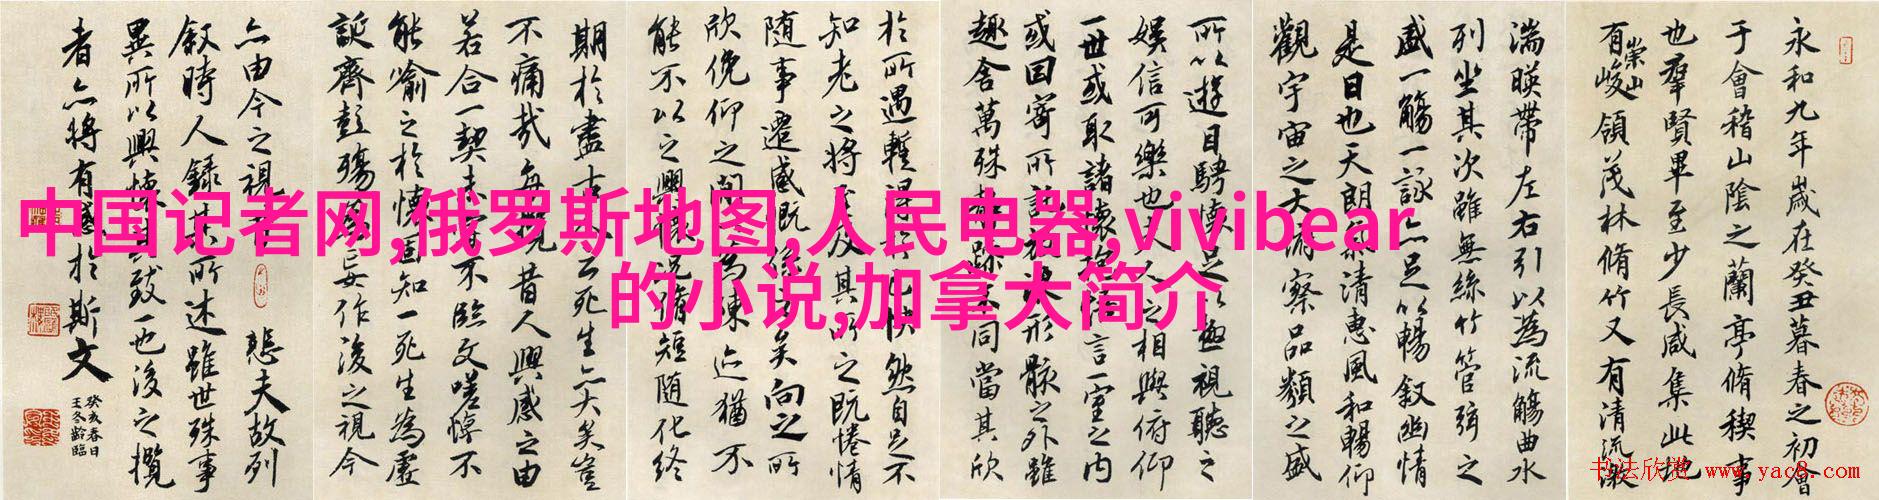 永和九年歲在癸丑暮春之初會
于會稽山陰之蘭亭脩禊事
也羣賢畢至少長咸集此地
有崇山峻領茂林脩竹又有清流激
湍暎帶左右引以為流觴曲水
列坐其次雖無絲竹管弦之
盛一觴一詠亦足以暢敘幽情
是日也天朗氣清惠風和暢仰
觀宇宙之大俯察品類之盛
所以遊目騁懷足以極視聽之
娛信可樂也夫人之相與俯仰
一世或取諸懷抱悟言一室之內
或因寄所託形骸之外雖
趣舍萬殊不同當其欣
於所遇暫得於快然自足不
知老之將至及其所之既惓情
隨事遷感慨係之矣向之所
欣俛仰之間為陳迹猶不
能不以之興懷況脩短隨化終
期於盡古人云死生亦大矣豈
不痛哉每攬昔人興感之由
若合一契未嘗不臨文嗟悼不
能喻之於懷固知一死生為虛
誕齊彭殤為妄作後之視今
亦由今之視昔悲夫故列
敘時人錄其所述雖世殊事
異所以興懷其致一也後之攬
者亦將有感於斯文
癸亥春日
王冬齡臨
中国记者网,俄罗斯地图,人民电器,vivibear
的小说,加拿大简介
书法欣赏 www.yac8.com